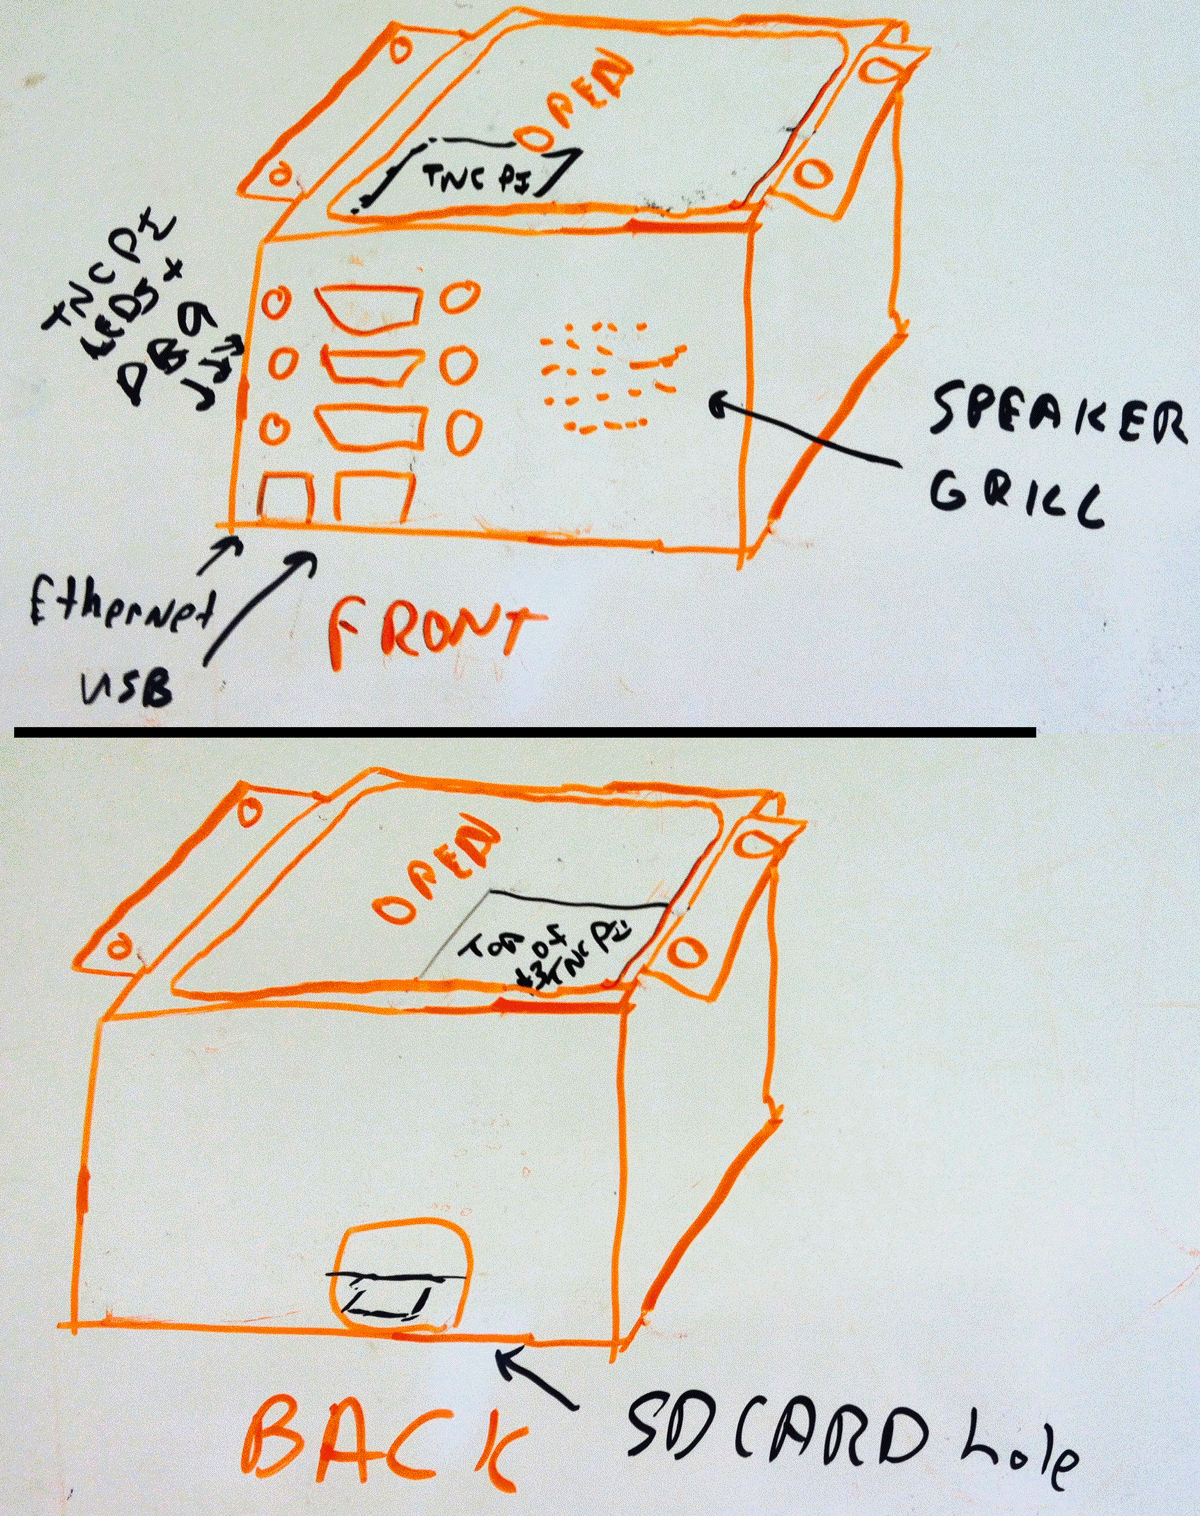 OPEN
TNC PI
TNC PI
LEDS +
DB9
SPEAKER
GRILL
Ethernet
USB
FRONT
OPEN
TOP OF
TNC PI
BACK
SD CARD hole